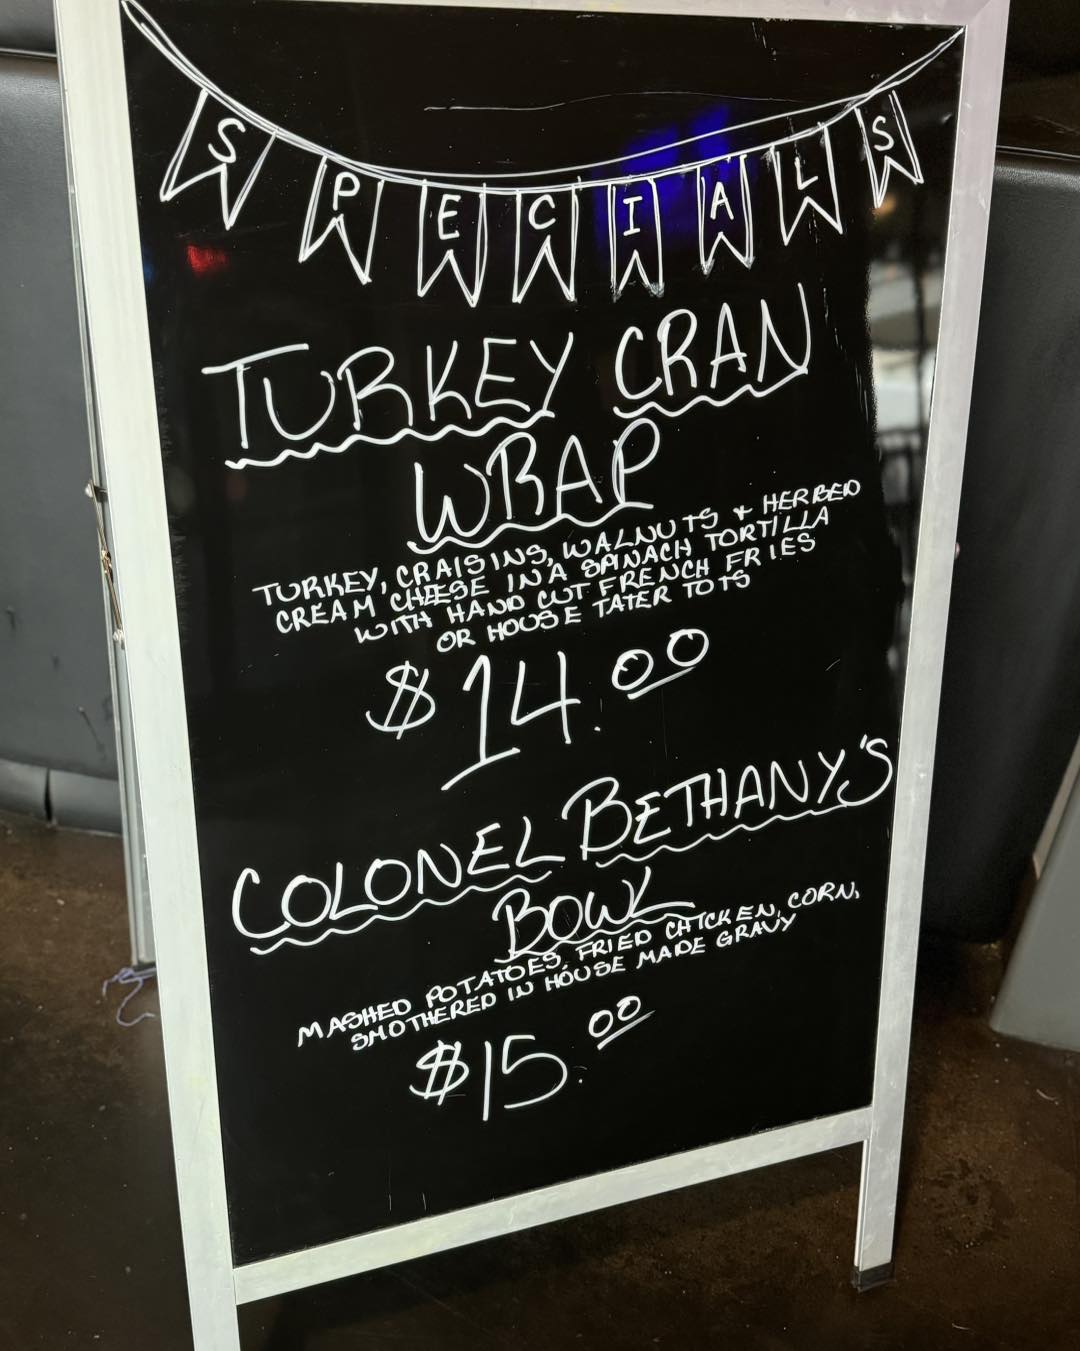 SPECIALS
TURKEY CRAN
WRAP
TURKEY, CRAISINS, WALNUTS + HERBED
CREAM CHEESE IN A SPINACH TORTILLA
WITH HAND CUT FRENCH FRIES
OR HOUSE TATER TOTS
$14.00
COLONEL BETHANY'S
BOWL
MASHED POTATOES, FRIED CHICKEN, CORN,
SMOTHERED IN HOUSE MADE GRAVY
$15.00